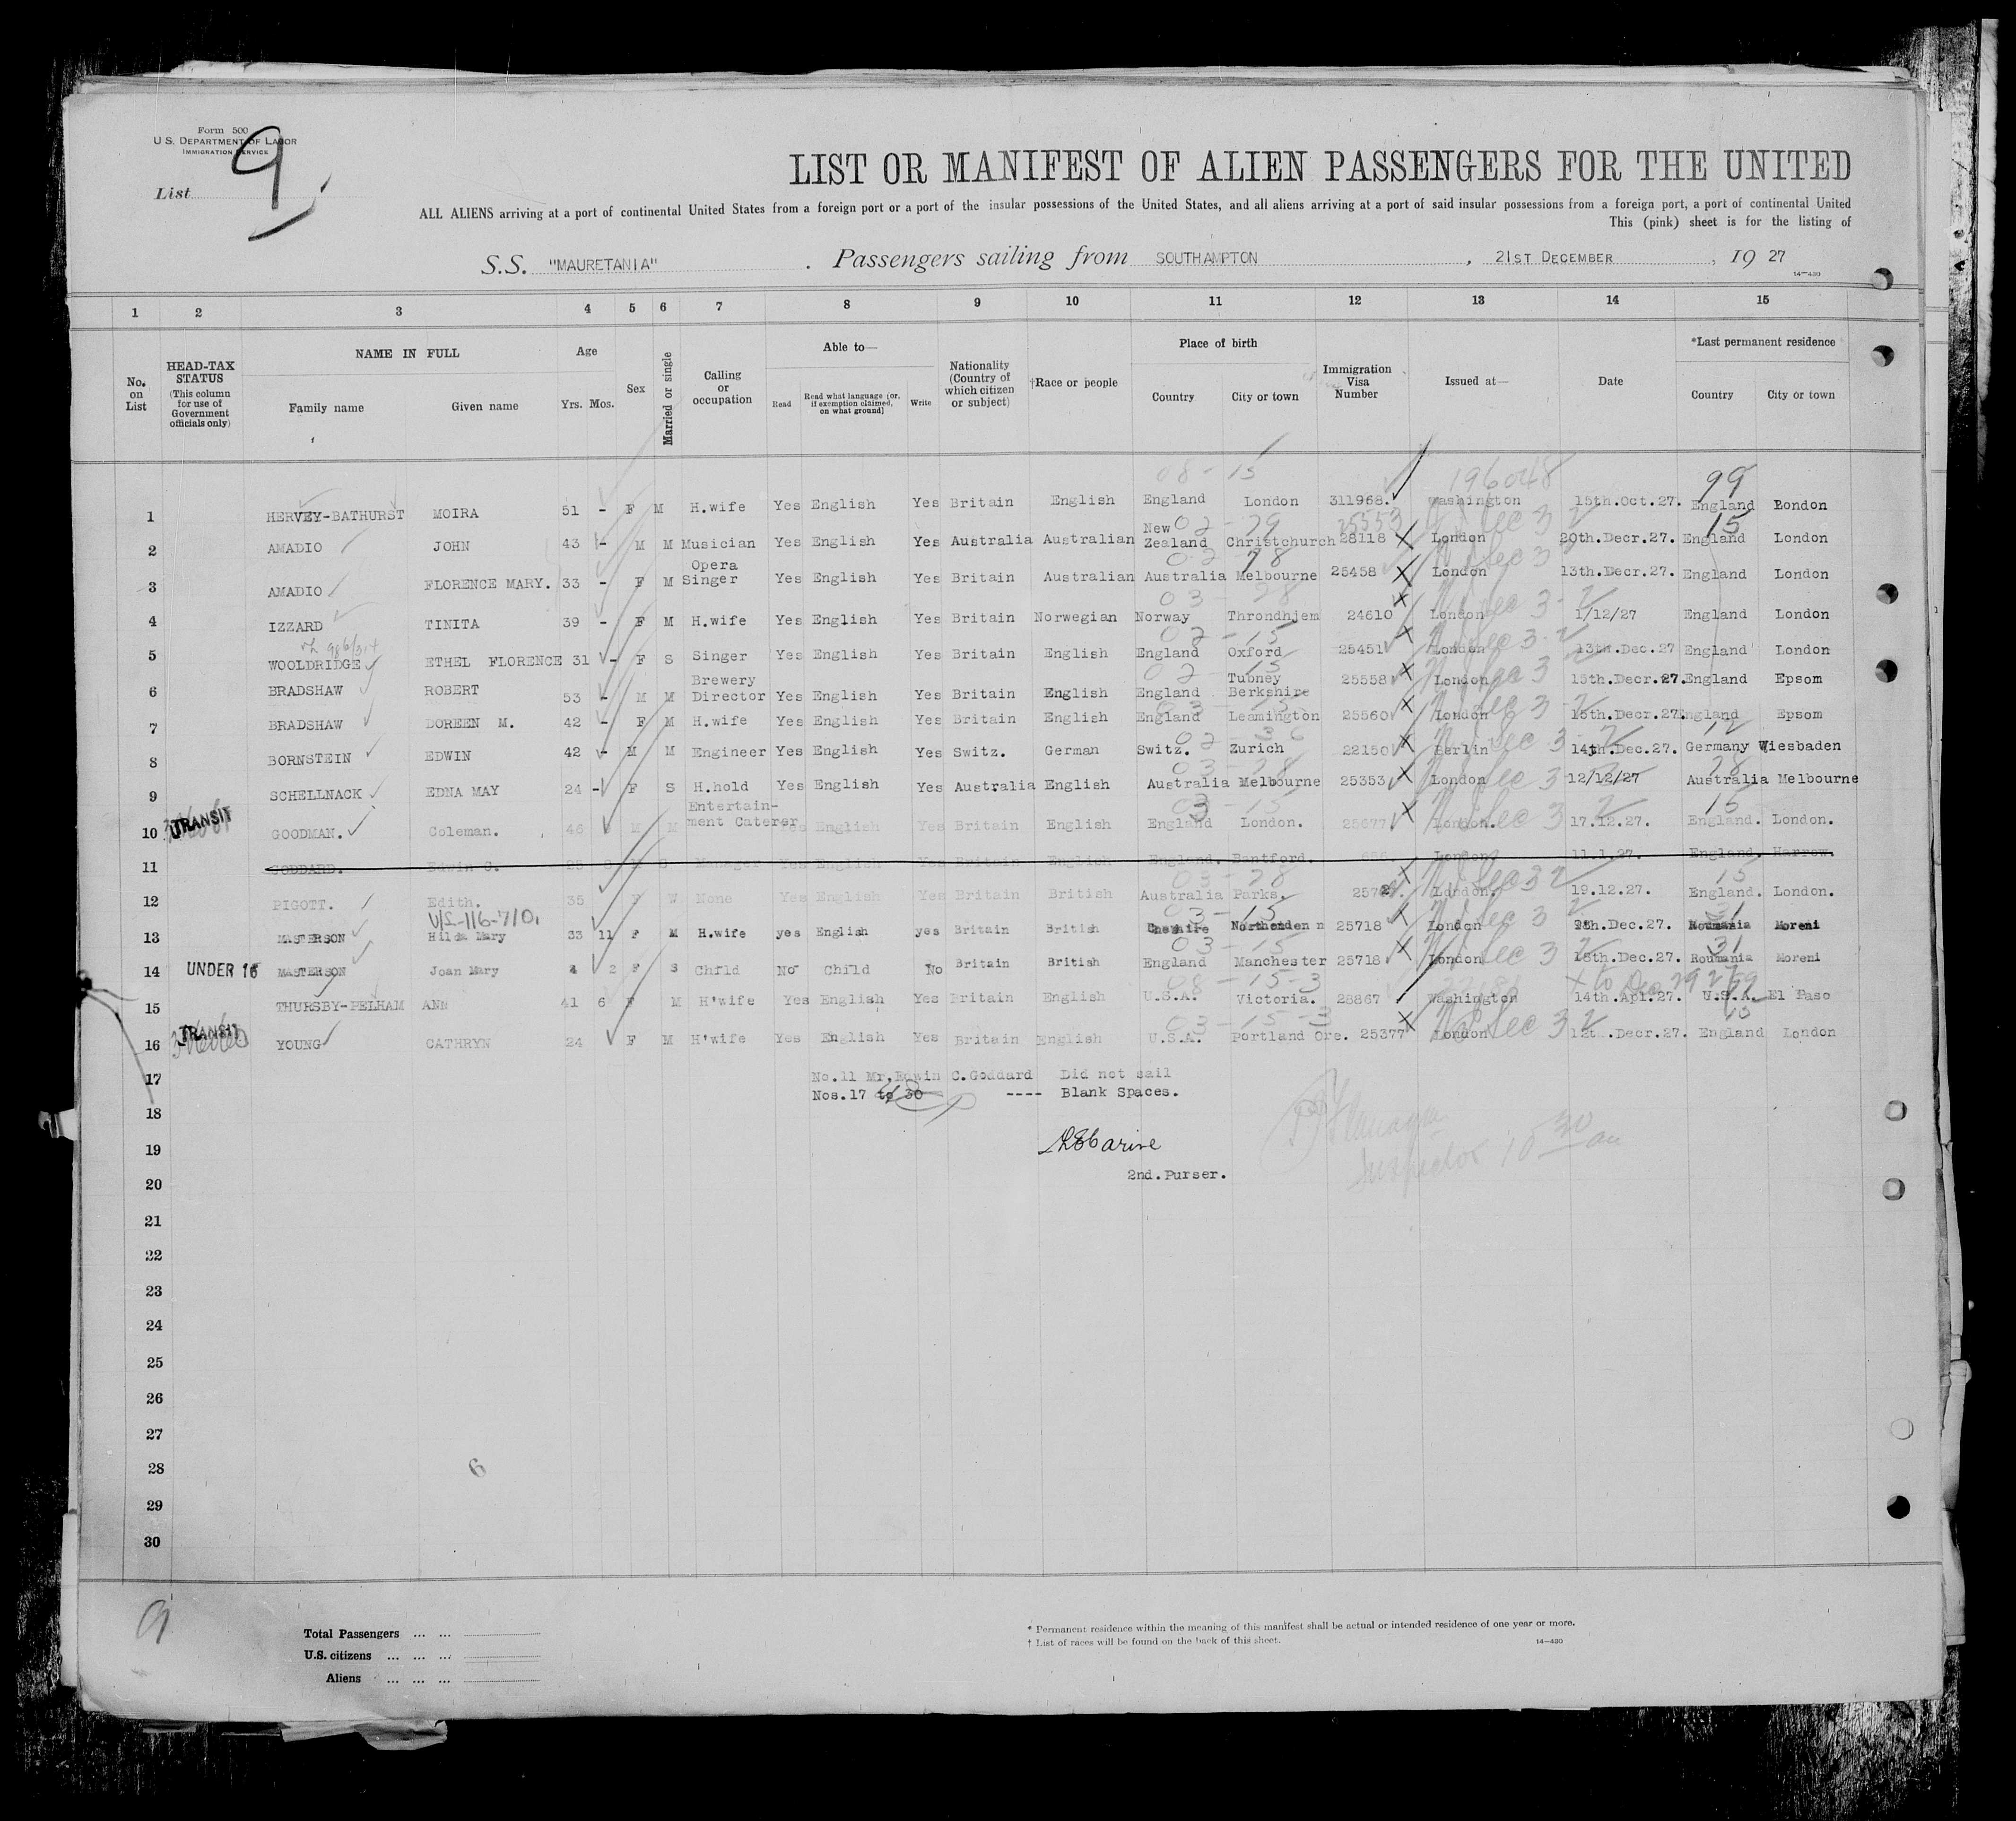 Form 500
U.S. DEPARTMENT OF LABOR
IMMIGRATION SERVICE
List 9
LIST OR MANIFEST OF ALIEN PASSENGERS FOR THE UNITED
ALL ALIENS arriving at a port of continental United States from a foreign port or a port of the insular possessions of the United States, and all aliens arriving at a port of said insular possessions from a foreign port, a port of continental United
This (pink) sheet is for the listing of
S.S. "MAURETANIA" . Passengers sailing from SOUTHAMPTON , 21ST DECEMBER , 19 27
14-430
1 2 3 4 5 6 7 8 9 10 11 12 13 14 15
No. on List
HEAD-TAX STATUS (This column for use of Government officials only)
NAME IN FULL Family name Given name
Age Yrs. Mos.
Sex
Married or single
Calling or occupation
Able to— Read Read what language [or, if exemption claimed, on what ground] Write
Nationality (Country of which citizen or subject)
†Race or people
Place of birth Country City or town
Immigration Visa Number
Issued at—
Date
*Last permanent residence Country City or town
08-15 196048 99
1 HERVEY-BATHURST MOIRA 51 - F M H.wife Yes English Yes Britain English England London 311968. Washington 15th.Oct.27. England London
02-29 25553 15
2 AMADIO JOHN 43 - M M Musician Yes English Yes Australia Australian New Zealand Christchurch 28118 London 20th.Decr.27. England London
02-78
3 AMADIO FLORENCE MARY. 33 - F M Opera Singer Yes English Yes Britain Australian Australia Melbourne 25458 London 13th.Decr.27. England London
03-28
4 IZZARD TINITA 39 - F M H.wife Yes English Yes Britain Norwegian Norway Throndhjem 24610 London 1/12/27 England London
02-15
5 WOOLDRIDGE ETHEL FLORENCE 31 - F S Singer Yes English Yes Britain English England Oxford 25451 London 13th.Dec.27 England London
02-15
6 BRADSHAW ROBERT 53 - M M Brewery Director Yes English Yes Britain English England Tubney Berkshire 25558 London 15th.Decr.27. England Epsom
03-15
7 BRADSHAW DOREEN M. 42 - F M H.wife Yes English Yes Britain English England Leamington 25560 London 15th.Decr.27. England Epsom
02-36 12
8 BORNSTEIN EDWIN 42 - M M Engineer Yes English Yes Switz. German Switz. Zurich 22150 Berlin 14th.Dec.27. Germany Wiesbaden
03-28 28
9 SCHELLNACK EDNA MAY 24 - F S H.hold Yes English Yes Australia English Australia Melbourne 25353 London 12/12/27 Australia Melbourne
03-15 15
10 TRANSIT GOODMAN. Coleman. 46 M M Entertainment Caterer Yes English Yes Britain English England London. 25677 London. 17.12.27. England. London.
11 GODDARD. Edwin C. Manager Yes English Yes Britain English England. London 11.1.27. England. Harrow.
03-28 15
12 PIGOTT. Edith. 35 F W None Yes English Yes Britain British Australia Parks. London. 19.12.27. England. London.
V/L-116-710,
03-15 31
13 MASTERSON Hilda Mary 33 11 F M H.wife yes English yes Britain British Northenden 25718 London Dec.27. Roumania Moreni
03-15 31
14 UNDER 16 MASTERSON Joan Mary 4 2 F S Child No Child No Britain British England Manchester 25718 London 15th.Dec.27. Roumania Moreni
08-15-3
15 THURSBY-PELHAM ANN 41 6 F M H'wife Yes English Yes Britain English U.S.A. Victoria. 28867 Washington 14th.Apl.27. U.S.A. El Paso
03-15-3 15
16 TRANSIT YOUNG CATHRYN 24 F M H'wife Yes English Yes Britain English U.S.A. Portland Ore. 25377 London 12th.Decr.27. England London
17 No.11 Mr.Edwin C.Goddard Did not sail
Nos.17 to 30 ---- Blank Spaces.
18
19
2nd.Purser.
Inspector 10 30 am
20
21
22
23
24
25
26
27
28
6
29
30
9
Total Passengers ... ...
U.S. citizens ... ... ...
Aliens ... ... ...
* Permanent residence within the meaning of this manifest shall be actual or intended residence of one year or more.
† List of races will be found on the back of this sheet.
14-430